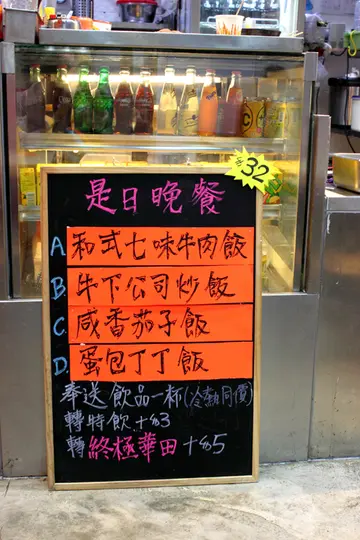 是日晚餐
$32
A. 和式七味牛肉飯
B. 牛下公司炒飯
C. 咸香茄子飯
D. 蛋包丁丁飯
奉送飲品一杯(冷熱同價)
轉特飲+$3
轉終極華田+$5